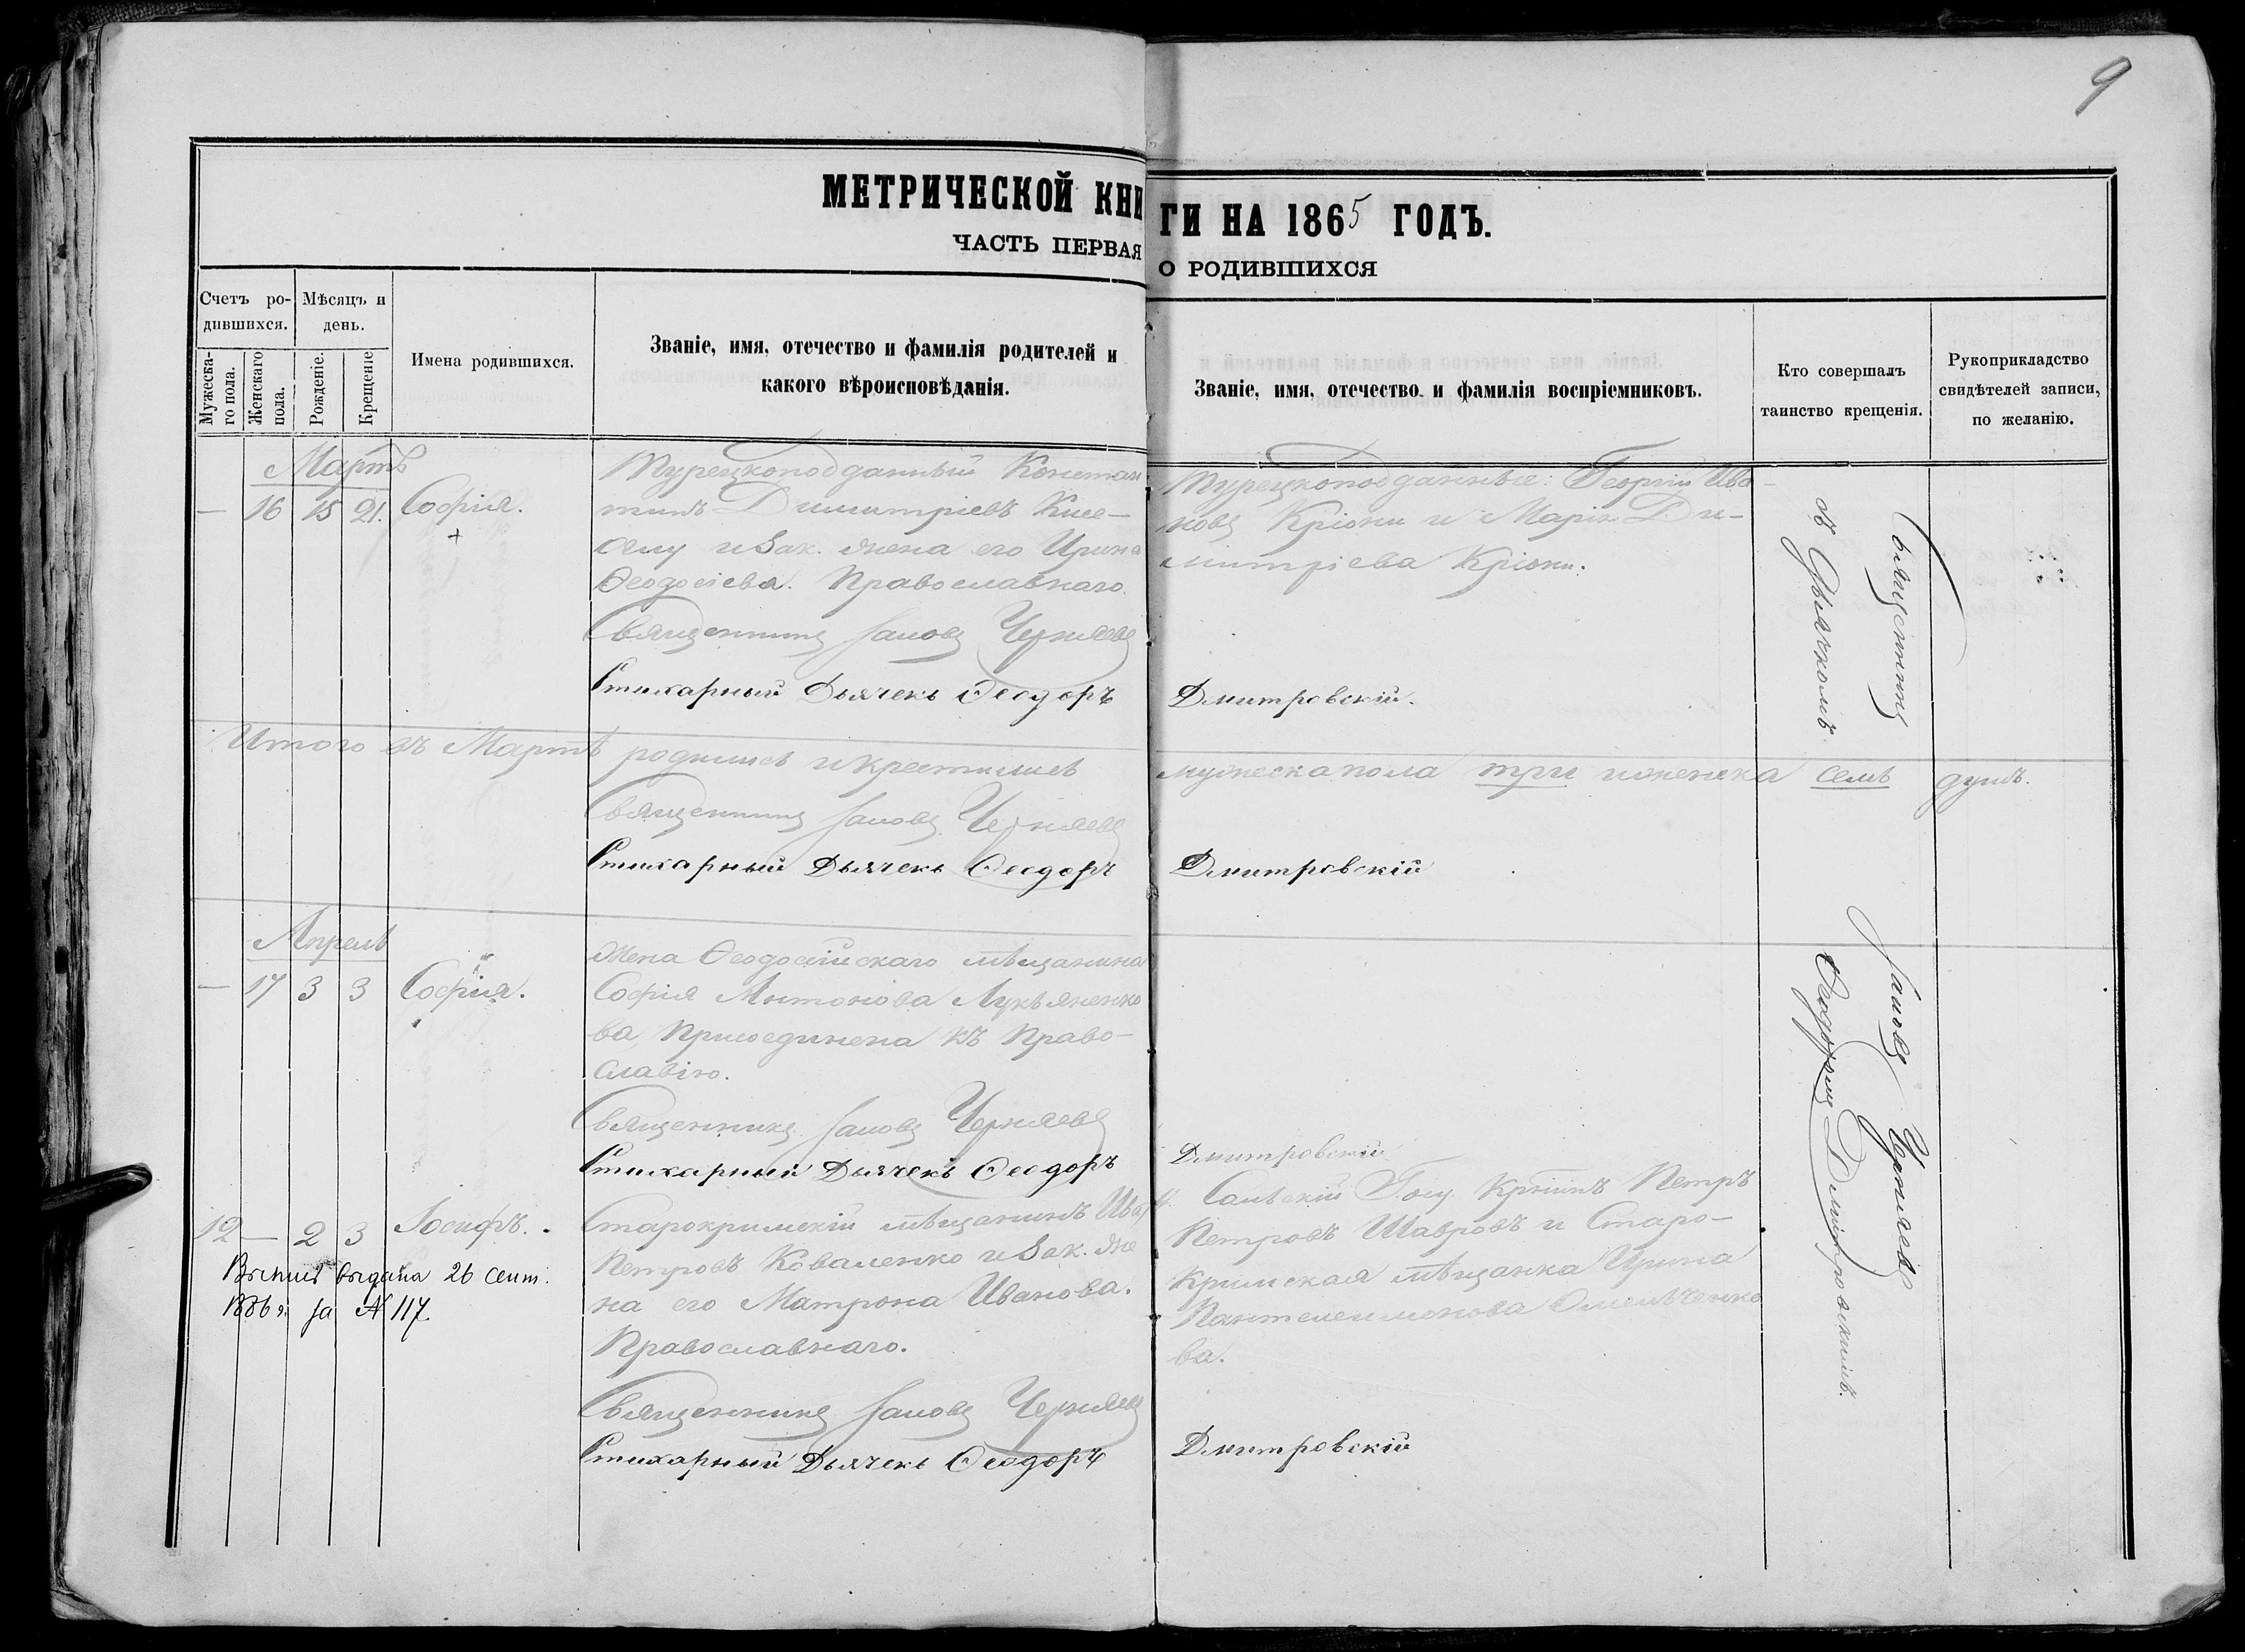 9
МЕТРИЧЕСКОЙ КНИГИ НА 1865 ГОДЪ.
ЧАСТЬ ПЕРВАЯ О РОДИВШИХСЯ
Счетъ родившихся.
Мужескаго пола.
Женскаго пола.
Мѣсяцъ и день.
Рожденіе.
Крещеніе
Имена родившихся.
Званіе, имя, отечество и фамилія родителей и
какого вѣроисповѣданія.
Званіе, имя, отечество и фамилія воспріемниковъ.
Кто совершалъ
таинство крещенія.
Рукоприкладство
свидѣтелей записи,
по желанію.
Мартъ
— 16 15 21. Софія.
Турецкоподданный Констан
тинъ Димитріевъ
и зак. жена его Ирина
Ѳеодосіева. Православнаго.
Священникъ Іаковъ Черняевъ
Стихарный Дьячекъ Ѳеодоръ Дмитровскій.
Турецкоподданные: Георгій Ива-
новъ Кріони и Марія Ди-
митріева Кріони.
Итого въ Мартѣ родились и крестились мужеска пола три и женска семь душъ.
Священникъ Іаковъ Черняевъ
Стихарный Дьячекъ Ѳеодоръ Дмитровскій
Апрель
— 17 3 3 Софія.
Жена Ѳеодосійскаго мѣщанина
Софія Антонова Лукьяненко
ва, Присоединена къ Право-
славію.
Священникъ Іаковъ Черняевъ
Стихарный Дьячекъ Ѳеодоръ Дмитровскій
12 — 2 3 Іосифъ.
Выпись выдана 26 сент.
1886 г. за № 117.
Старокримскій мѣщанинъ Ива
Петровъ Коваленко и зак. же
на его Матрона Иванова.
Православнаго.
Священникъ Іаковъ Черняевъ
Стихарный Дьячекъ Ѳеодоръ Дмитровскій
Петръ
Петровъ Шавровъ и Старо-
кримская мѣщанка Ирина
Пантелеимонова Омельченко
ва.
Священникъ Іаковъ Черняевъ
съ Дьячкомъ Ѳеодоромъ Дмитровскимъ.